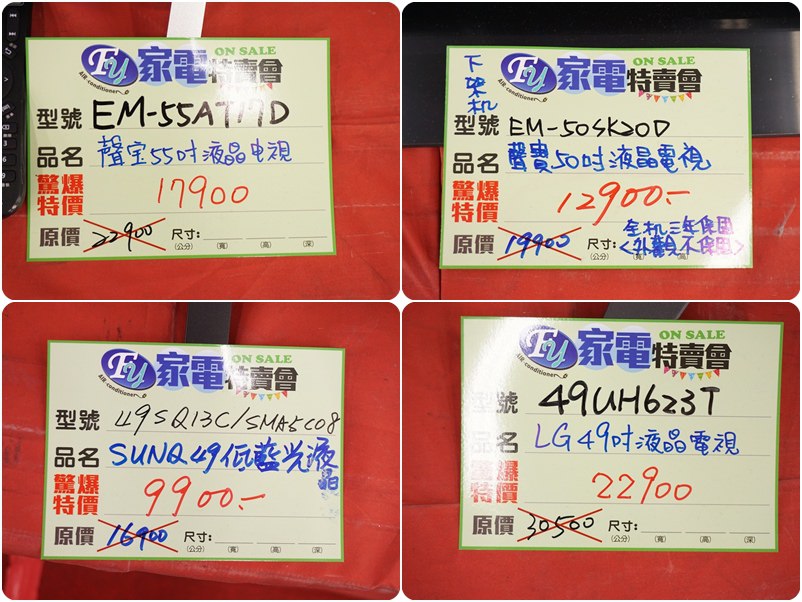 FY 家電特賣會 ON SALE
AIR-conditioner
型號 EM-55AT17D
品名 聲宝55吋液晶电視
驚爆特價 17900
原價 22900 尺寸:
(公分) (寬) (高) (深)
下架机
FY 家電特賣會 ON SALE
AIR-conditioner
型號 EM-50SK20D
品名 聲寶50吋液晶電視
驚爆特價 12900.-
原價 19900 尺寸: 全机三年保固
(公分) <外觀不保固>
FY 家電特賣會 ON SALE
AIR-conditioner
型號 49SQ13C/SMA5C08
品名 SUNQ 49低藍光液晶
驚爆特價 9900.-
原價 16900 尺寸:
(公分) (寬) (高) (深)
FY 家電特賣會 ON SALE
AIR-conditioner
型號 49UH623T
品名 LG 49吋液晶電視
驚爆特價 22900
原價 30500 尺寸:
(公分) (寬) (高) (深)